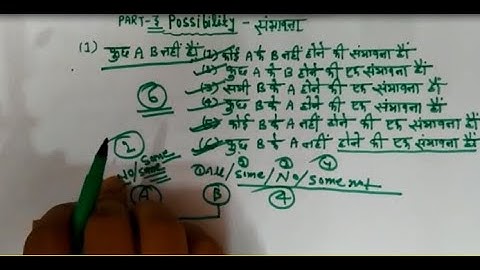 PART-3 Possibility - संभावना
(1) कुछ A B नहीं हैं। (1) कोई A के B नहीं होने की संभावना हैं।
(2) कुछ A के B होने की एक संभावना हैं।
(3) सभी B के A होने की एक संभावना हैं।
(4) कुछ B के A होने की एक संभावना हैं।
(5) कोई B के A नहीं होने की एक संभावना हैं।
(6) कुछ B के A नहीं होने की एक संभावना हैं।
6
2 Some ① ③ ④
No/some ALL/some/No/some not
A B 4